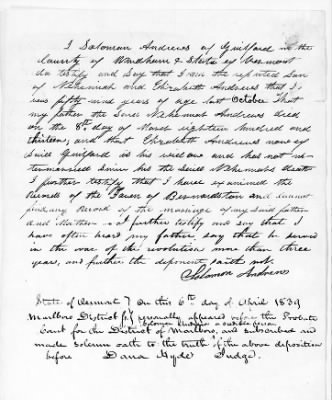 I Solomon Andrews of Guilford in the
County of Windham & State of Vermont
do testify and say that I am the reputed Son
of Nehemiah and Elizabeth Andrews that I
was fifty nine years of age last October That
my father the said Nehemiah Andrews died
on the 8th day of March eighteen hundred and
thirteen, and that Elizabeth Andrews now of
said Guilford is his widow and has not in-
termarried since his the said Nehemiahs death
I further testify that I have examined the
Records of the Town of Bernardston and cannot
find any Record of the marriage of my said father
and Mother - I further testify and say that
I have often heard my father say that he served
in the war of the revolution more than three
years, and further the deponent saith not.
Solomon Andrews
State of Vermont } On this 6th day of April 1839
Marlboro District Ss } personally appeared before the Probate
Solomon Andrews a credible person
Court for the District of Marlboro, and subscribed and
made solemn oath to the truth of the above deposition
before Dana Hyde Judge.